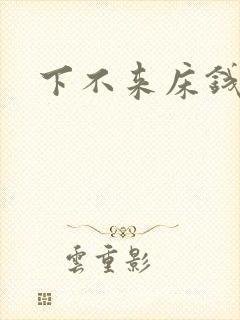 下不来床钱
雲重影